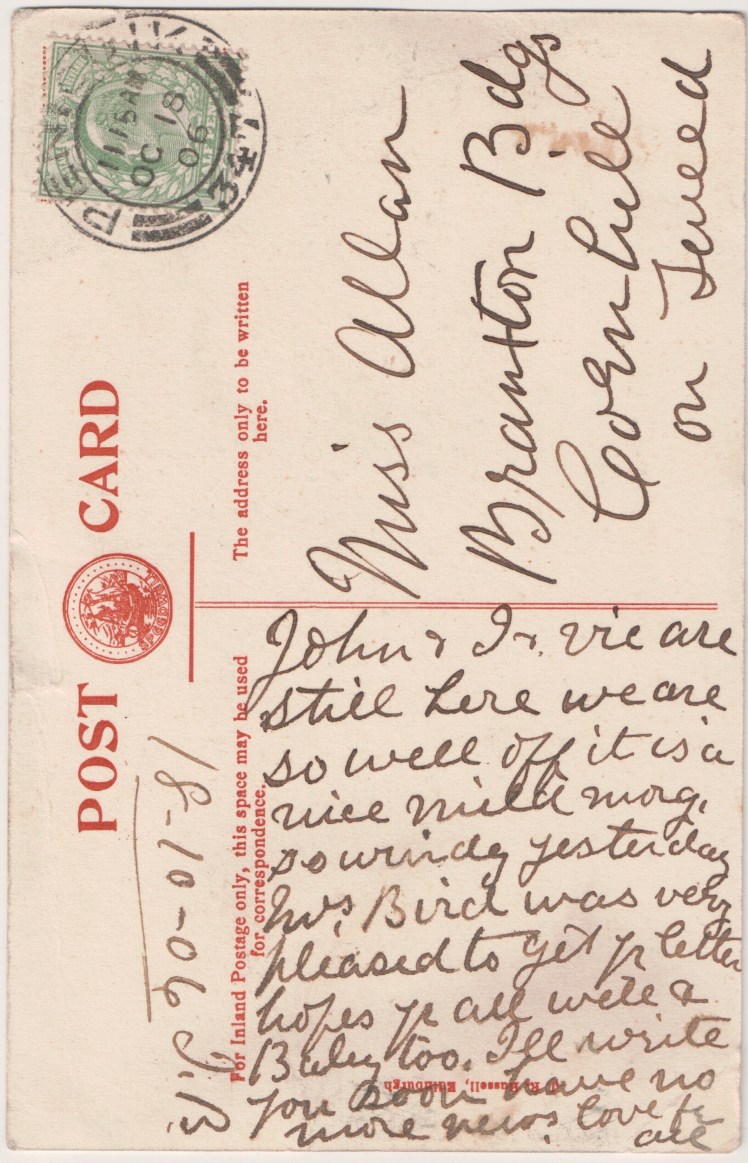 POST CARD
For Inland Postage only, this space may be used
for correspondence.
The address only to be written
here.
11 15 AM
OC 18
06
34
18-10-06
Miss Allan
Branxton Bdgs
Cornhill
on Tweed
John & I & Vie are
still here we are
so well off it is a
nice mild morg.
so windy yesterday
Mrs. Bird was very
pleased to get yr letter
hopes yr all well &
Baby too. I'll write
you soon have no
more news. love to
all
Russell, Edinburgh